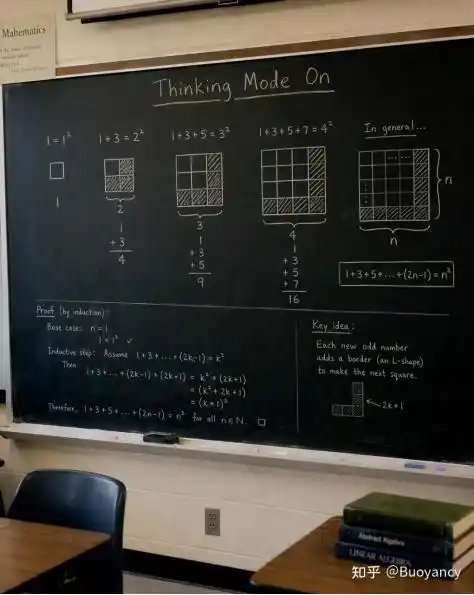 Mahematics
Thinking Mode On
1 = 1²
1
1 + 3 = 2²
2
1
+ 3
4
1 + 3 + 5 = 3²
3
1
+ 3
+ 5
9
1 + 3 + 5 + 7 = 4²
4
1
+ 3
+ 5
+ 7
16
In general...
n
n
1 + 3 + 5 + ... + (2n-1) = n²
Proof (by induction):
Base case: n = 1
1 = 1² ✓
Inductive step: Assume 1 + 3 + ... + (2k-1) = k²
Then
1 + 3 + ... + (2k-1) + (2k+1) = k² + (2k+1)
= (k² + 2k + 1)
= (k+1)²
Therefore, 1 + 3 + 5 + ... + (2n-1) = n² for all n ∈ N. □
Key idea:
Each new odd number
adds a border (an L-shape)
to make the next square.
2k+1
Abstract Algebra
LINEAR ALGEBRA
知乎 @Buoyancy